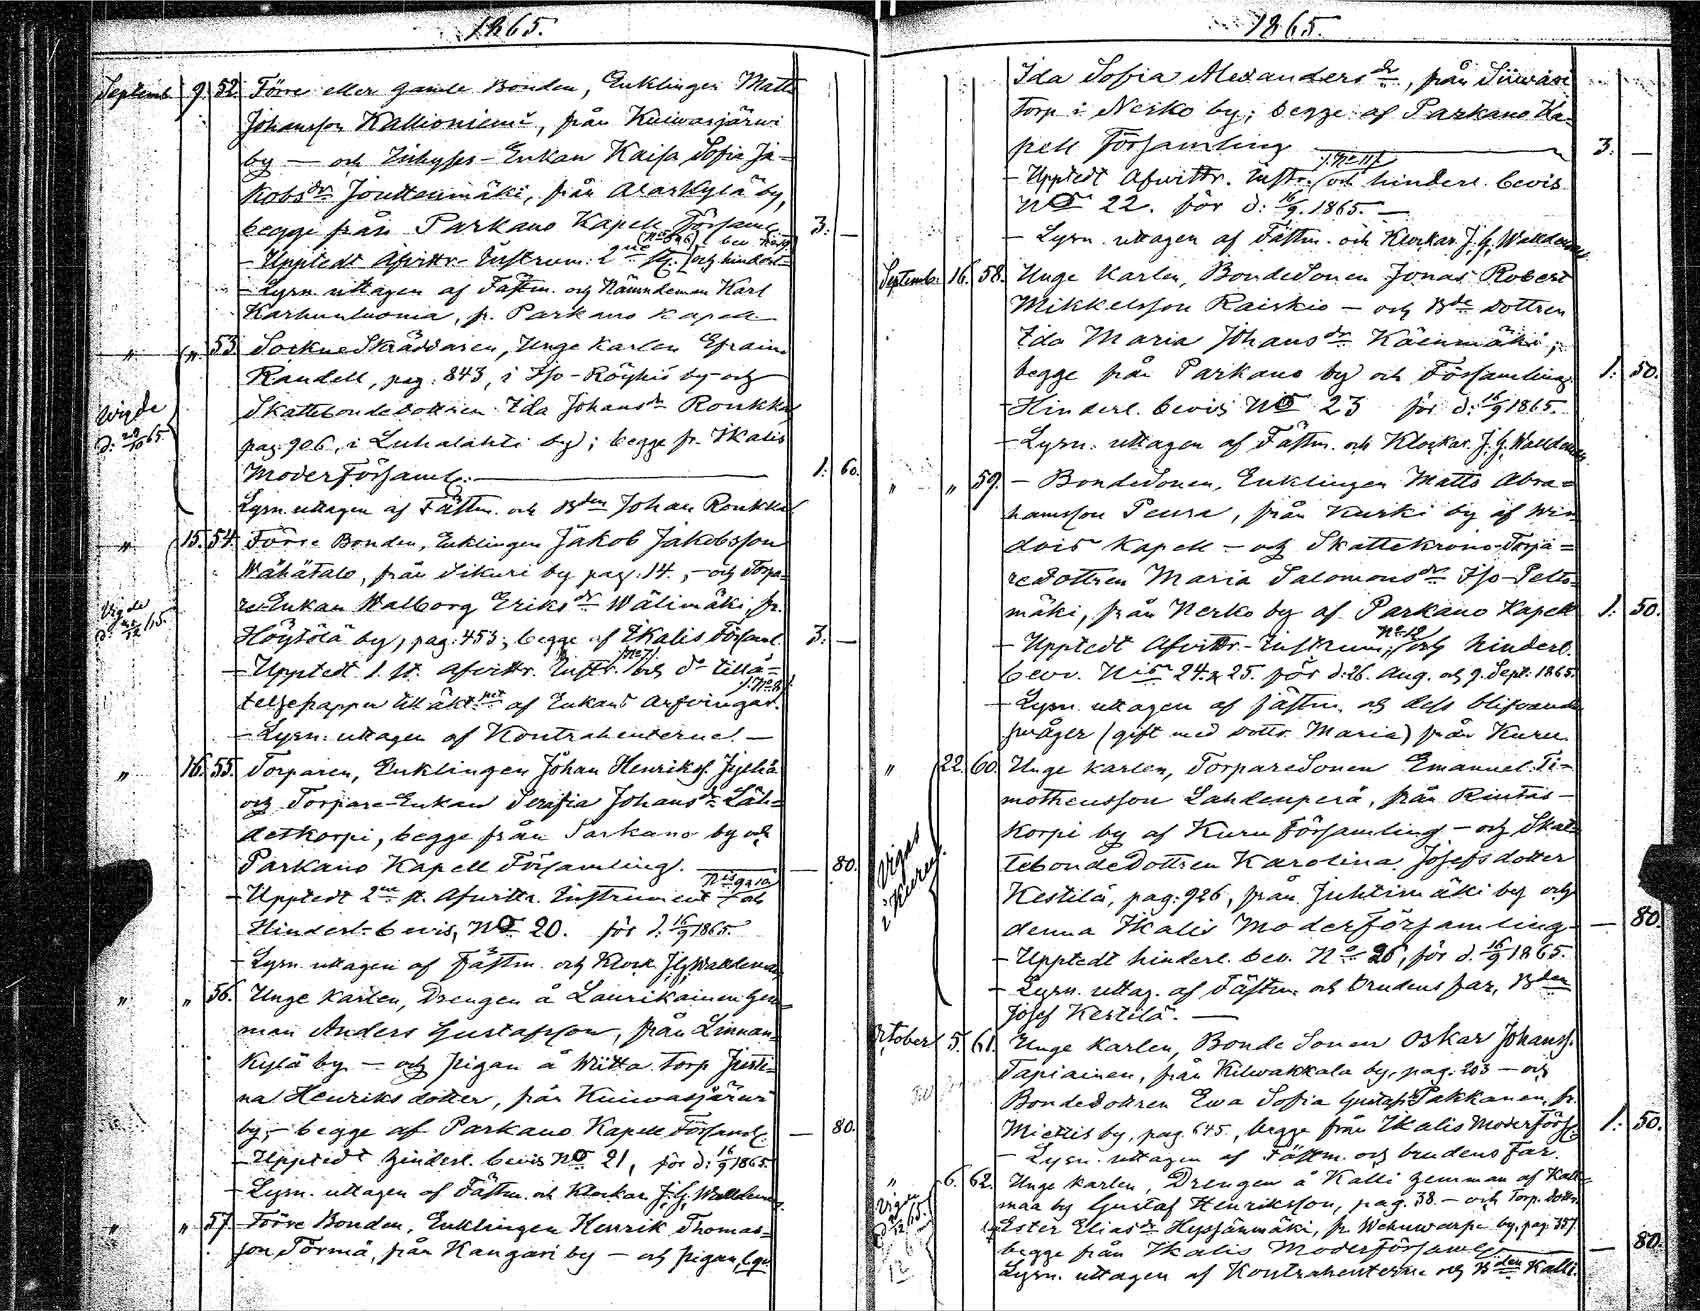 1865.
Septemb. 9. 52. Förre eller gamle Bonden, Enklingen Matts
Johansson Kallioniemi, från Kuiwasjärwi
by — och Enkan Kaisa Sofia Ja-
kobsdr Jouttenmäki, från Alaskylä by,
begge från Parkano Kapell Församl. 3: —
- Upptedt Afvittr. Instrum. 2ne st. och hinderl.
- Lysn. uttagen af Fästm. och Nämndeman Karl
Karhunluoma, fr. Parkano Kapell
" " 53. Sockne Skräddaren, Unge karlen Efraim
Randell, pag. 843, i Iso-Röyhiö by och
Wigde
d. 29/10 65.
Skattebondedottren Ida Johansdr Roukka
pag. 906, i Luhalahti by; begge fr. Ikalis
Moderförsaml. 1: 60.
Lysn. uttagen af Fästm. och Bden Johan Roukka
" 15. 54. Förre Bonden, Enklingen Jakob Jakobsson
Wähätalo, från Sikuri by pag. 14., - och Torpa-
re-Enkan Walborg Eriksdr Wälimäki, fr.
Höytölä by, pag. 453; begge af Ikalis Församl. 3: —
- Upptedt 1. st. Afvittr. Instr.
af Enkans arfvingar.
- Lysn. uttagen af Kontrahenterne. —
" 16. 55. Torparen, Enklingen Johan Henrikss.
och Torpare-Enkan Serafia Johansdr Läh-
deskorpi, begge från Parkano by och
Parkano Kapell Församling. — 80.
- Upptedt 2ne st. Afvittr. Instrument och
Hinderl. bevis, No 20. för d. 16/9 1865.
- Lysn. uttagen af Fästm. och Klock. J. G. Walldenius
" " 56. Unge karlen, Drengen å Laurikainen hem-
man Anders Gustafsson, från Linnan-
kylä by — och pigan å Wiitta torp Justi-
na Henriksdotter, från Kuiwasjärwi
by, - begge af Parkano Kapell Församl. — 80.
- Upptedt hinderl. bevis No 21, för d. 16/9 1865.
- Lysn. uttagen af Fästm. och Klockar. J. G. Walldenius
" " 57. Förre Bonden, Enklingen Henrik Thomas-
son Törmä, från Kangari by — och pigan,
1865.
Ida Sofia Alexandersdr, från
Torp i Nerko by; begge af Parkano Ka-
pell Församling 3: —
- Upptedt Afvittr. Instr. och hinderl. bevis
No 22. för d. 16/9. 1865. —
- Lysn. uttagen af Fästm. och Klockar. J. G. Walldenius
Septemb. 16. 58. Unge karlen, BondeSonen Jonas Robert
Mikkelsson Raiskio — och Bde dottren
Ida Maria Johansdr Käenmäki;
begge från Parkano by och Församling 1: 50.
- Hinderl. bevis No 23 för d. 16/9 1865.
- Lysn. uttagen af Fästm. och Klockar. J. G. Walldenius
" " 59. - BondeSonen, Enklingen Matts Abra-
hamsson Peura, från Kurki by af Wir-
dois Kapell - och Skattekrono-Torpa-
redottren Maria Salomonsdr Iso-Petts-
mäki, från Nerko by af Parkano Kapell 1: 50.
- Upptedt Afvittr. Instrum. No 12 och hinderl.
bev. 24. & 25. för d: 26. Aug. och 9. Sept. 1865.
- Lysn. uttagen af fästm. och dess blifvande
svåger (gift med dottr. Maria) från Kuru.
" 22. 60. Unge karlen, TorpareSonen Emanuel Ti-
motheusson Lahdenperä, från Rintas-
korpi by af Kuru Församling - och Skat-
tebondeDottren Karolina Josefsdotter
Vigas
i Kuru.
Kestilä, pag. 926, från Juhtimäki by och
denna Ikalis Moderförsamling. — 80.
- Upptedt hinderl. bev. No 26, för d. 16/9 1865.
- Lysn. uttag. af Fästm. och Brudens far, Bden
Josef Kestilä. —
October 5. 61. Unge karlen, Bonde Sonen Oskar Johanss.
Tapiainen, från Kilwakkala by, pag. 203 — och
BondeDottren Ewa Sofia Gustafsdr Pakkanen, fr.
Miettis by, pag. 645., begge från Ikalis Moderförs. 1: 50.
- Lysn. uttagen af Fästm. och brudens Far.
" 6. 62. Unge karlen, Drengen å Kalli hemman af Kall-
maa by Gustaf Henriksson, pag. 38 — och Torp. dottr.
Ester Eliasdr, fr. by, pag. 357
begge från Ikalis Moderförsaml. — 80.
Lysn. uttagen af Kontrahenterne och Bden Kalli.